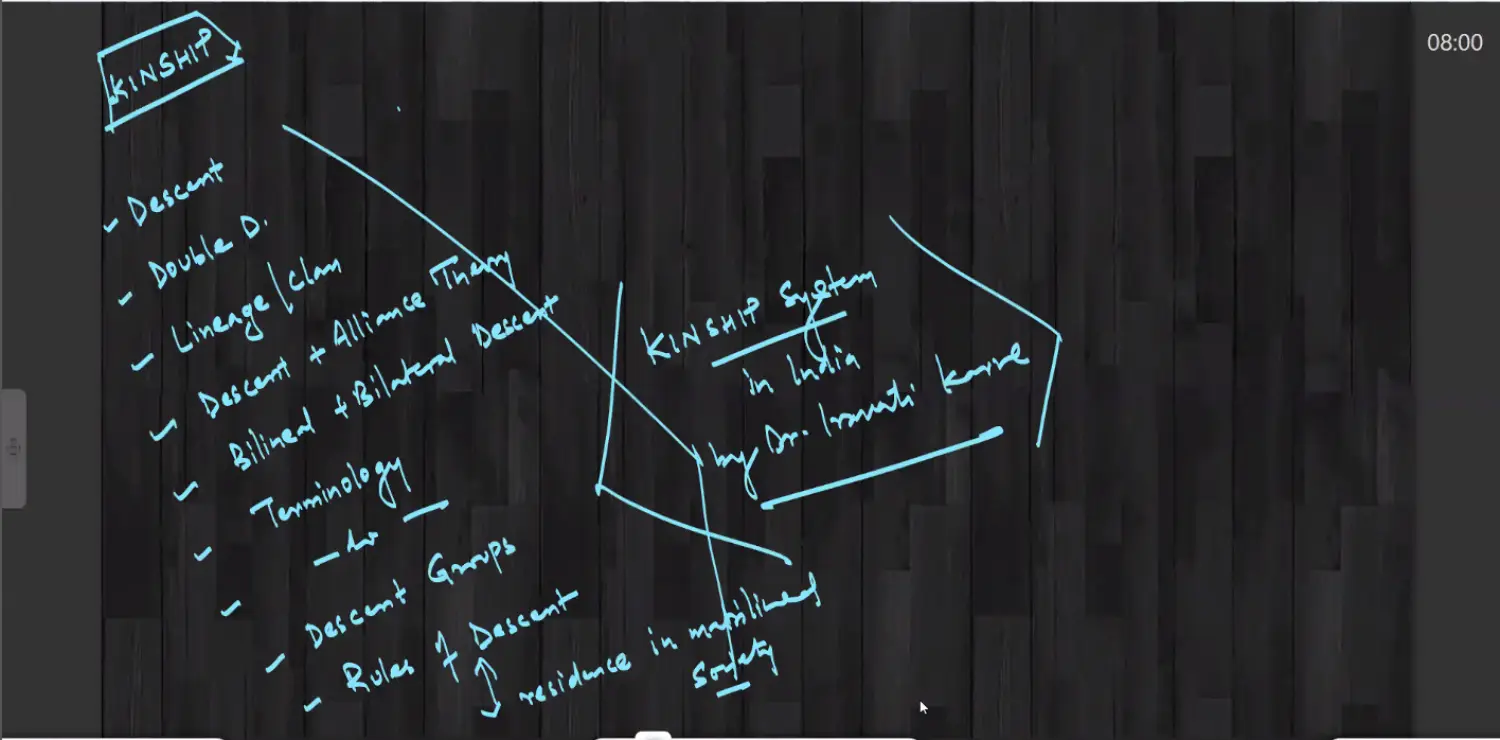 KINSHIP
08:00
Descent
Double D.
Lineage/Clan
Descent + Alliance Theory
Bilineal + Bilateral Descent
Terminology
Descent Groups
Rules of Descent
residence in matrilineal
Society
KINSHIP System
in India
by Dr. Iravati Karve